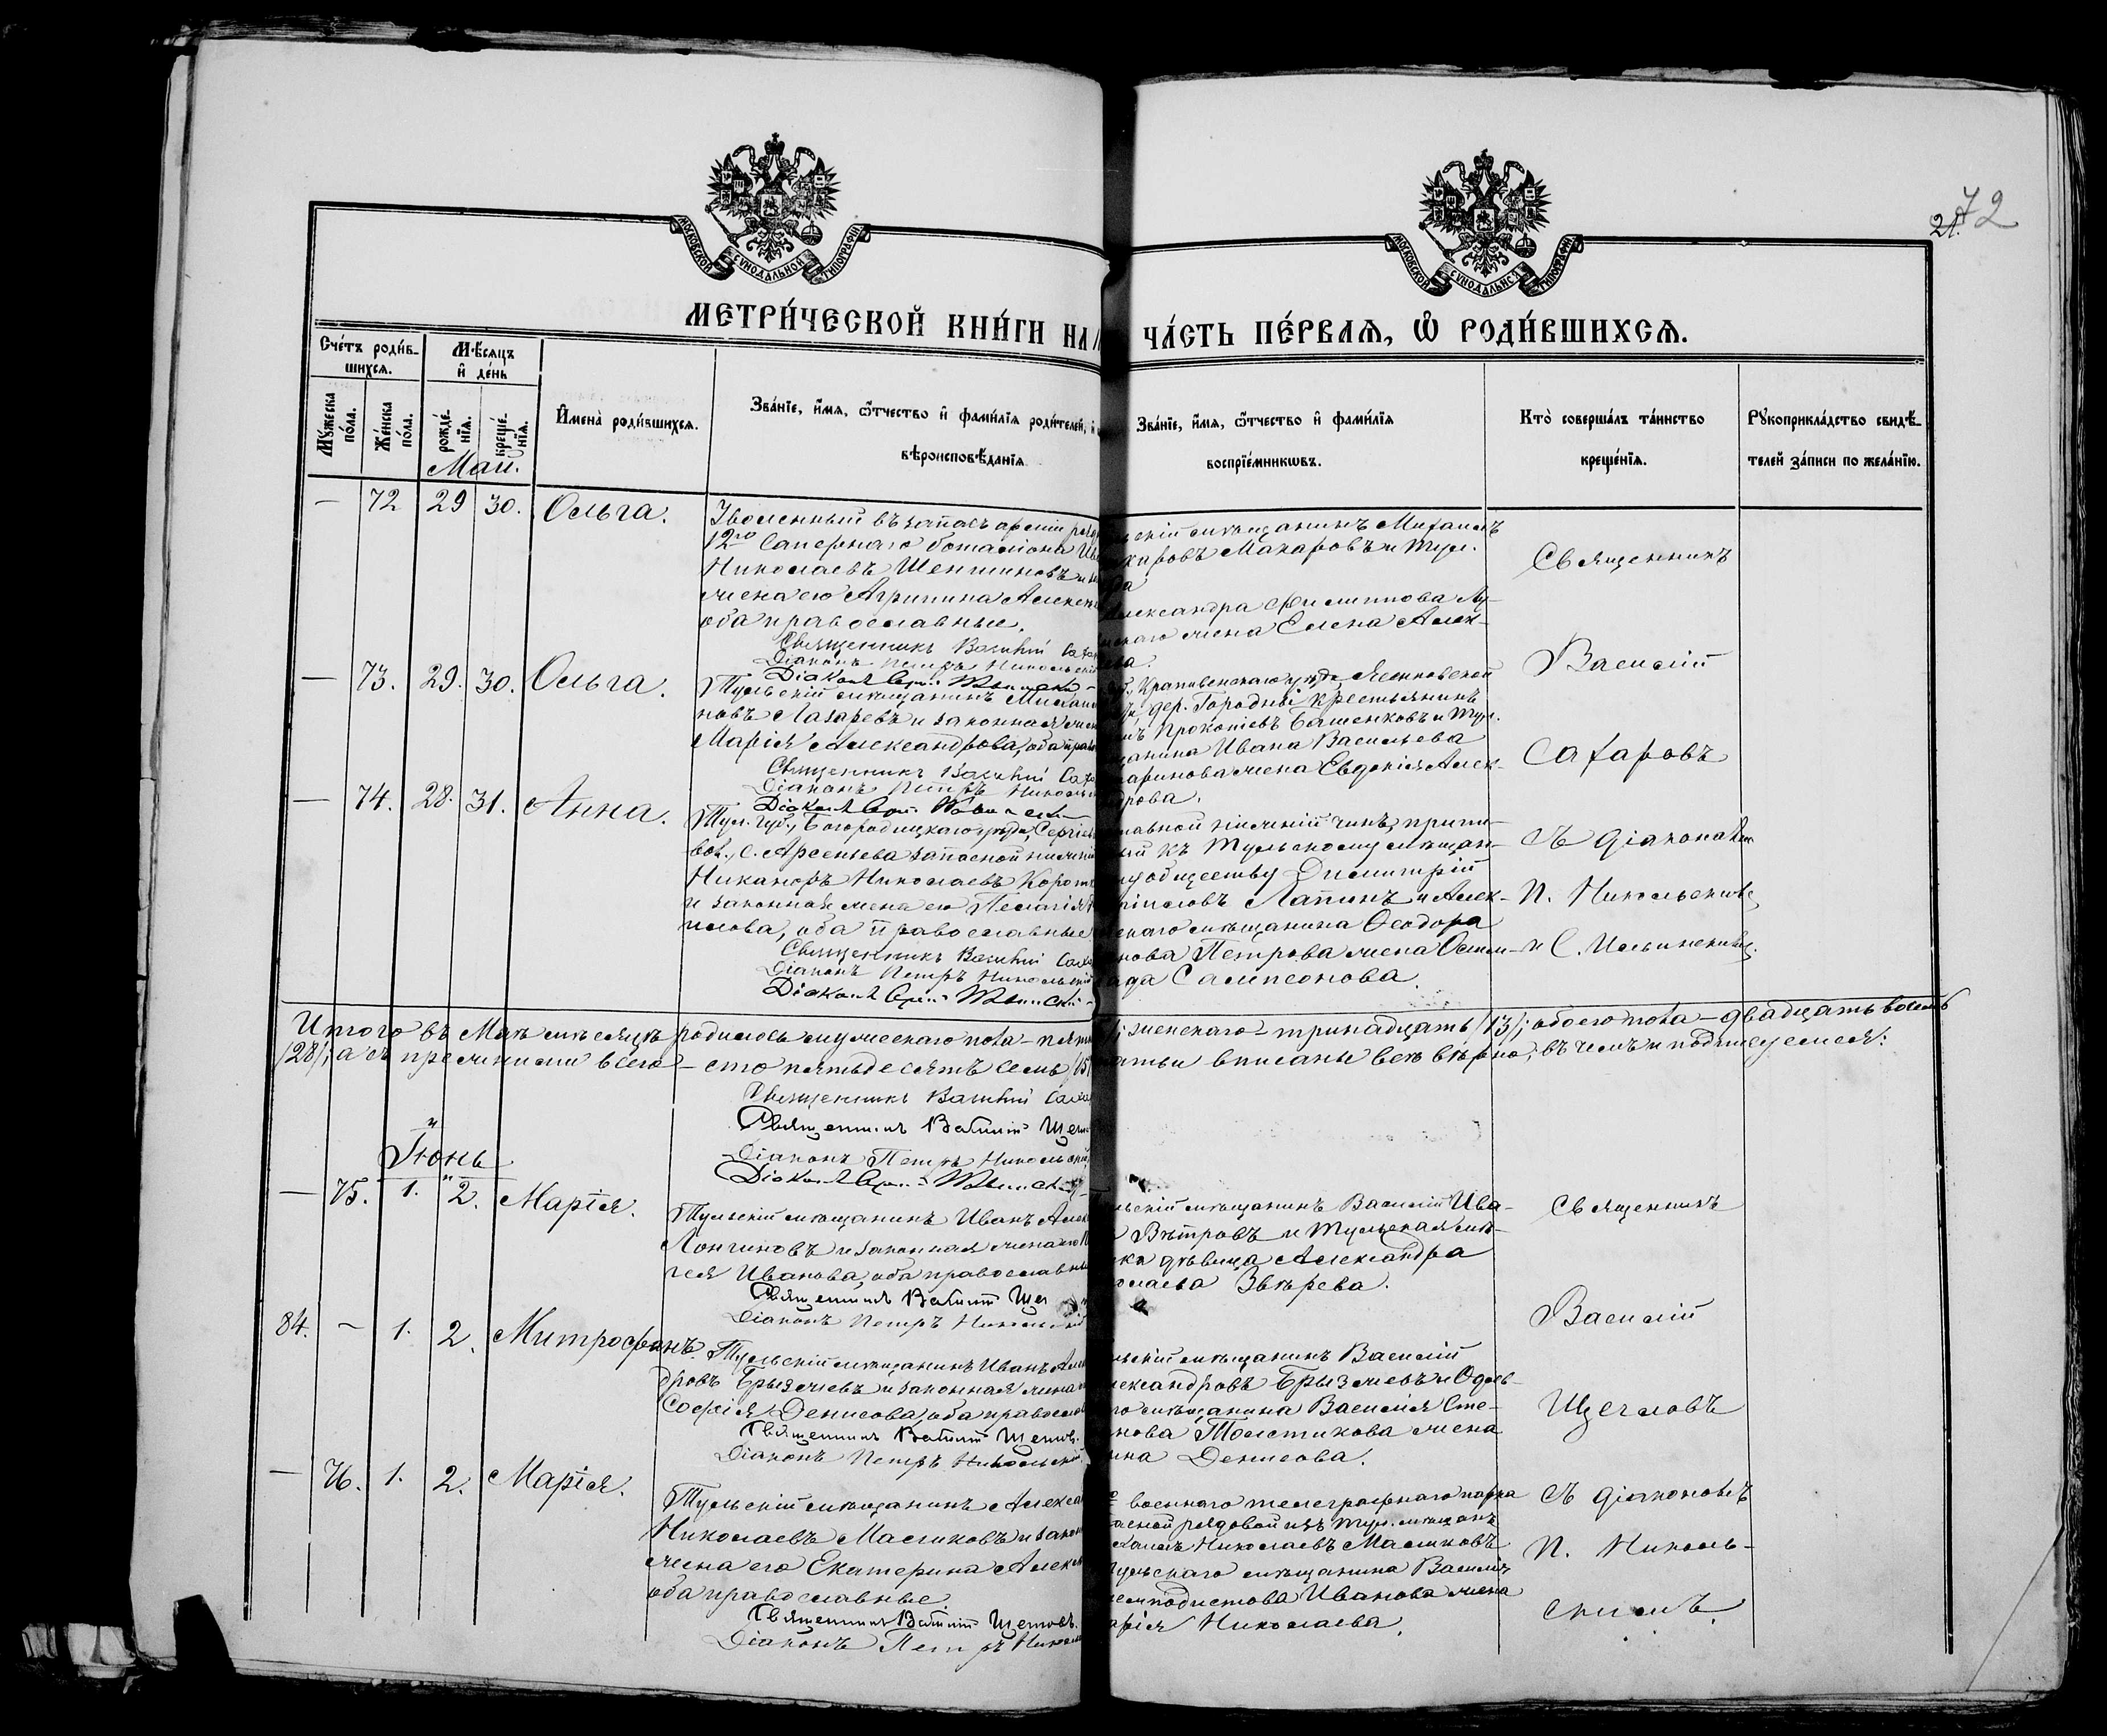 МОСКОВСКОЙ СѴНОДАЛЬНОЙ ТИПОГРАФІИ
МОСКОВСКОЙ СѴНОДАЛЬНОЙ ТИПОГРАФІИ
21. 72
МЕТРИ́ЧЕСКОЙ КНИ́ГИ НА
ЧА́СТЬ ПЕ́РВАѦ, Ѿ РОДИ́ВШИХСѦ.
Счéтъ роди́в-
шихсѧ.
Мѣ́сѧцъ
и҆ де́нь
Мꙋ́жеска по́ла.
Же́нска по́ла.
рожде́-нїѧ.
креще́-нїѧ.
И҆мена̀ роди́вшихсѧ.
Зва́нїе, и҆́мѧ, ѻ҆́тчество и҆ фами́лїѧ роди́телей, и҆
вѣроисповѣ́данїѧ
Зва́нїе, и҆́мѧ, ѻ҆́тчество и҆ фами́лїѧ
воспрїе́мникѡвъ.
Кто̀ соверша́лъ та́инство
креще́нїѧ.
Рꙋкоприкла́дство свидѣ́-
телей за́писи по жела́нїю.
Маи.
— 72 29 30. Ольга.
Уволенный въ запасъ арміи ряд
12го Сапернаго баталіона
Николаевъ Шеншиновъ и
жена его Агрипина Алексе
оба православные.
Священникъ Василій Саха
Діаконъ Петръ Никольскій
Діаконъ Сергій
скій мѣщанинъ Михаилъ
Макаровъ и Тул.
Александра Филиппова Лу-
скаго жена Елена Алек-
ва.
Священникъ
— 73. 29. 30. Ольга.
Тульскій мѣщанинъ Михаи
новъ Лазаревъ и законная жен
Марія Александрова, оба прав
Священникъ Василій Саха
Діаконъ Петръ Никольс
Діаконъ Сергій
Крапивенскаго уѣзда, Ясенковской
дер. Городны крестьянинъ
Прокопіевъ Башенковъ и Тул.
щанина Ивана Васильева
аринова жена Евдокія Алек-
рова.
Василій
Сахаровъ
— 74. 28. 31. Анна.
Тул. губ., Богородицкаго уѣзда, Сергіев
вол., с. Арсеньева запасной нижній
Никаноръ Николаевъ Корот
и законная жена его Пелагія
илова, оба православные
Священникъ Василій Саха
Діаконъ Петръ Никольскій
Діаконъ Сергій
пасной нижній чинъ, припи-
ый къ Тульскому мѣщан-
му обществу Димитрій
Лапинъ и Алек-
скаго мѣщанина Ѳеодора
нова Петрова жена
ада Сампсонова.
съ діаконами
П. Никольскимъ
и С. Ильинскимъ.
Итого въ Маѣ мѣсяцѣ родилось мужескаго пола — пятн
женскаго — тринадцать /13/; обоего пола — двадцать восемь
/28/; а съ прежними всего — сто пятьдесятъ семь /15
статьи вписаны всѣ вѣрно; въ чемъ и подписуемся:
Священникъ Василій Саха
Священникъ Василій Щег
Діаконъ Петръ Никольскій
Діаконъ Сергій
Іюнь
— 75. 1. 2. Марія.
Тульскій мѣщанинъ Иванъ Алек
Лонгиновъ и законная жена его
Иванова, оба православны
Священникъ Василій Ще
Діаконъ Петръ Никольскій
льскій мѣщанинъ Василій Ива-
Вѣтровъ и Тульская мѣ-
ка дѣвица Александра
олаева Звѣрева.
Священникъ
Василій
84. — 1. 2. Митрофанъ.
Тульскій мѣщанинъ Иванъ Алек
дровъ Брызжевъ и законная жена
Софія Денисова, оба правосла
Священникъ Василій Щегловъ.
Діаконъ Петръ Никольскій
льскій мѣщанинъ Василій
лександровъ Брызжевъ и Одоев-
го мѣщанина Василія Сте-
нова Толстикова жена
ина Денисова.
Щегловъ
— 76. 1. 2. Марія.
Тульскій мѣщанинъ Алекса
Николаевъ Масликовъ и закон
жена его Екатерина Алекса
оба православные.
Священникъ Василій Щегловъ.
Діаконъ Петръ Николь
военнаго телеграфнаго парка
пасной рядовой изъ Тул. мѣщанъ
Николаевъ Масликовъ
Тульскаго мѣщанина Василія
Иванова жена
арія Николаева.
съ діакономъ
П. Николь-
скимъ.